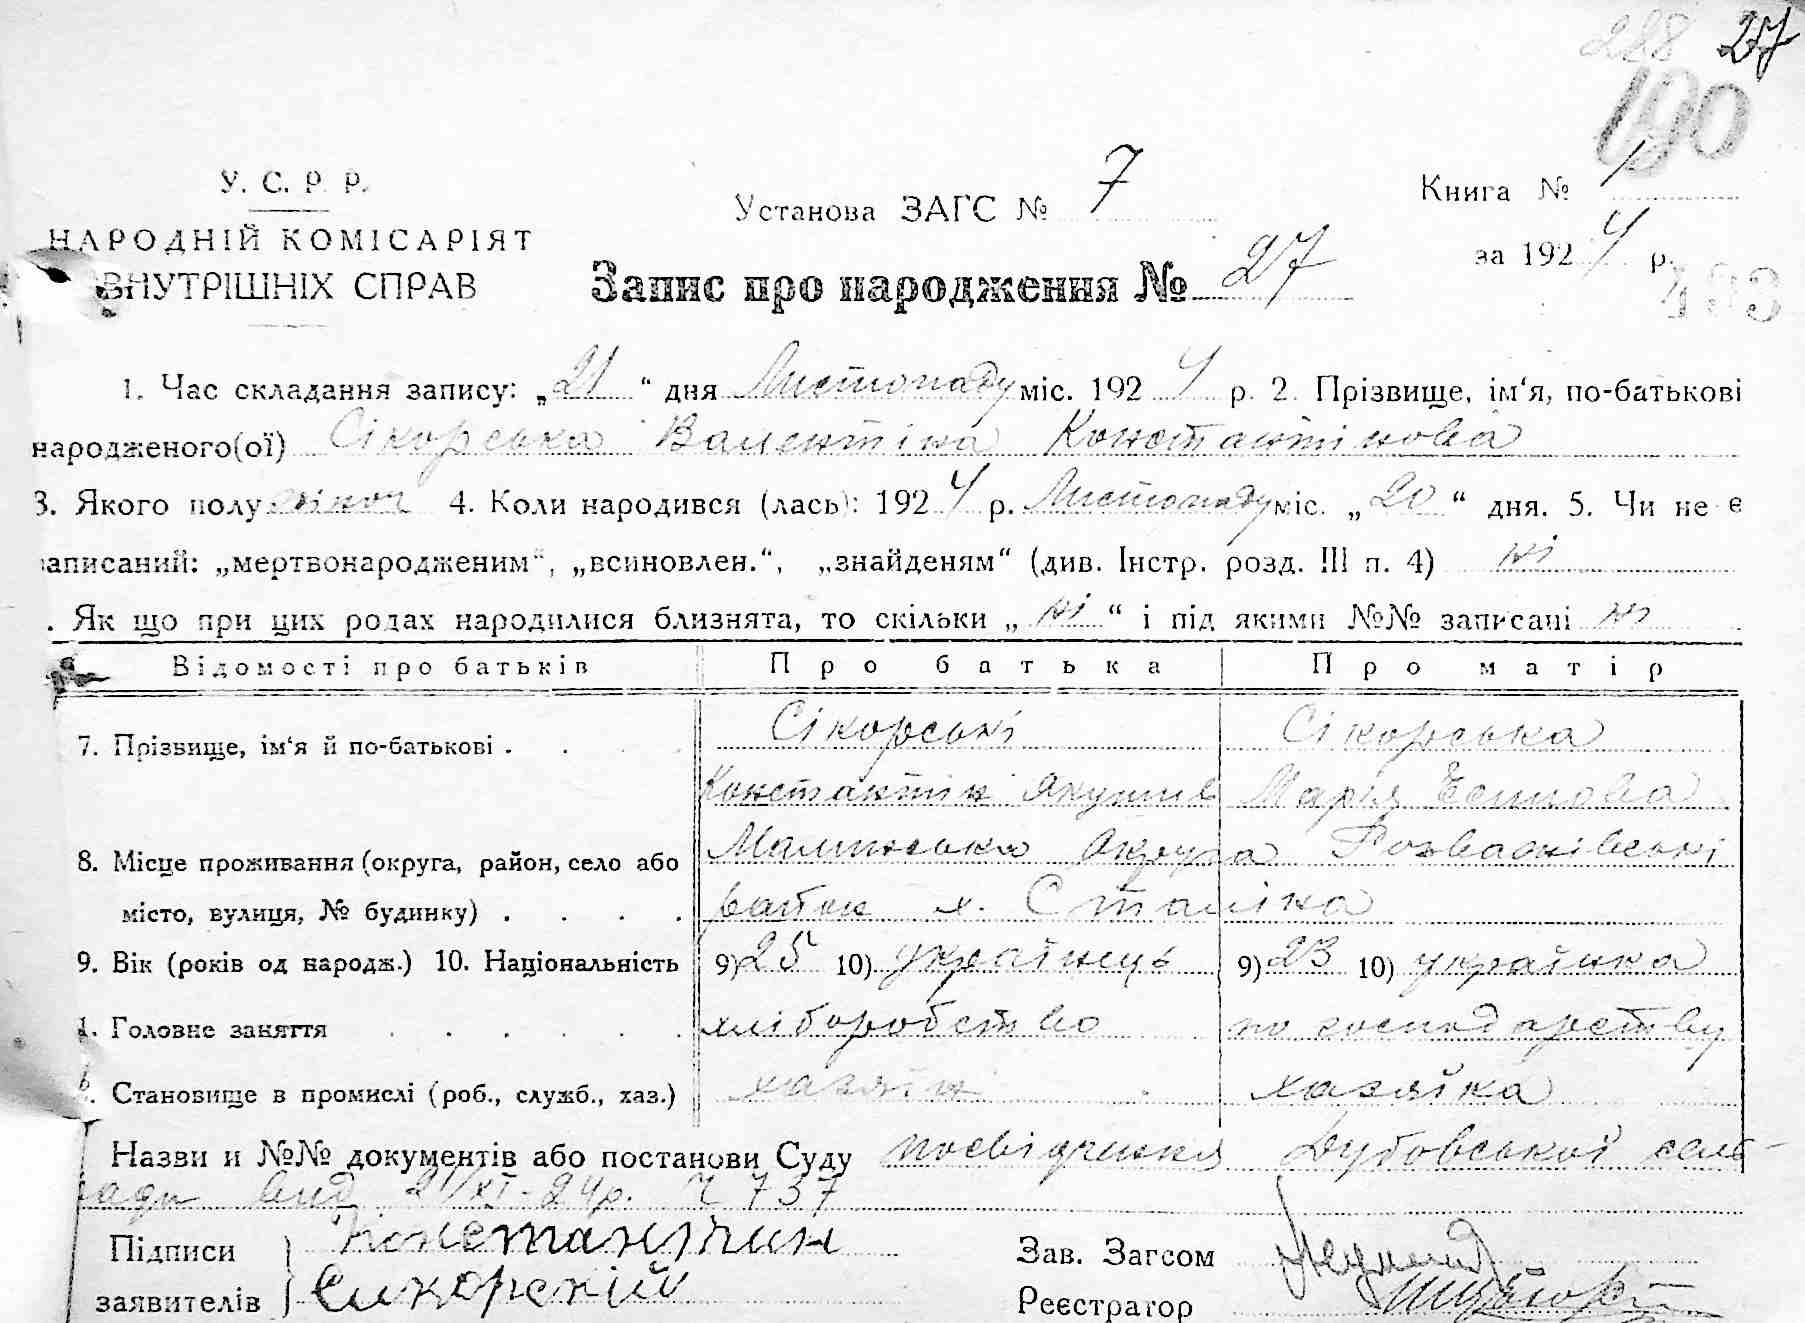 288 27
190
У. С. Р. Р.
НАРОДНІЙ КОМІСАРІЯТ
ВНУТРІШНІХ СПРАВ
Установа ЗАГС № 7
Книга № 1
за 1924 р.
Запис про народження № 27
1. Час складання запису: „21“ дня Листопаду міс. 1924 р. 2. Прізвище, ім‘я, по-батькові
народженого(ої) Сікорська Валентіна Константінова
3. Якого полу жіноч 4. Коли народився (лась): 1924 р. Листопаду міс. „20“ дня. 5. Чи не є
записаний: „мертвонародженим“, „всиновлен.“, „знайденям“ (див. Інстр. розд. III п. 4) ні
. Як що при цих родах народилися близнята, то скільки „ні“ і під якими №№ записані ні
Відомості про батьків Про батька Про матір
7. Прізвище, ім‘я й по-батькові . Сікорські Сікорська
Константін Якутів Марія Есипова
8. Місце проживання (округа, район, село або Малинська округа Розважівські
місто, вулиця, № будинку) . . . . район х. Сталіна
9. Вік (років од народж.) 10. Національність 9) 25 10) українець 9) 23 10) українка
1. Головне заняття хліборобство по господарству
. Становище в промислі (роб., служб., хаз.) хазяїн хазяйка
Назви и №№ документів або постанови Суду посвідчення Дубовської сель-
ради вид 21/XI-24р. Ч 737
Підписи Константин Зав. Загсом
заявителів Сикорский Реєстратор